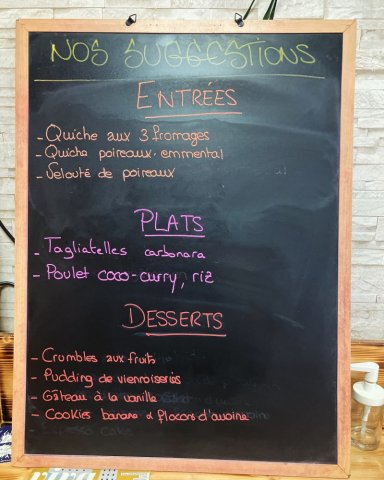 NOS SUGGESTIONS
ENTRÉES
- Quiche aux 3 fromages
- Quiche poireaux. emmental
- Velouté de poireaux
PLATS
- Tagliatelles carbonara
- Poulet coco-curry, riz
DESSERTS
- Crumbles aux fruits
- Pudding de viennoiseries
- Gâteau à la vanille
- Cookies banane & flocons d'avoine